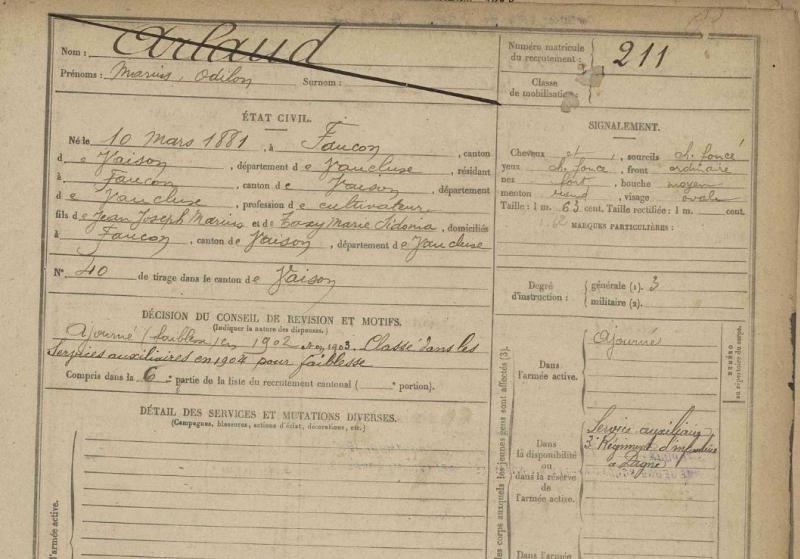 Nom : Arlaud
Prénoms : Marius, Odilon Surnom :
ÉTAT CIVIL.
Né le 10 Mars 1881, à Faucon, canton
de Vaison, département de Vaucluse, résidant
à Faucon, canton de Vaison, département
de Vaucluse, profession de cultivateur
fils de Jean Joseph Marius et de Marie Sidonia, domiciliés
à Faucon, canton de Vaison, département de Vaucluse
N° 40 de tirage dans le canton de Vaison
DÉCISION DU CONSEIL DE REVISION ET MOTIFS.
(Indiquer la nature des dispenses.)
Ajourné (faiblesse) en 1902 et 1903. Classé dans les
Services auxiliaires en 1904 pour faiblesse
Compris dans la 6e partie de la liste du recrutement cantonal ( portion).
DÉTAIL DES SERVICES ET MUTATIONS DIVERSES.
(Campagnes, blessures, actions d'éclat, décorations, etc.)
Numéro matricule
du recrutement : 211
Classe
de mobilisation :
SIGNALEMENT.
Cheveux et, sourcils ch. foncé
yeux ch. foncé, front ordinaire
nez fort, bouche moyen
menton rond, visage ovale
Taille : 1 m. 63 cent. Taille rectifiée : 1 m. cent.
MARQUES PARTICULIÈRES :
Degré
d'instruction :
générale (1). 3
militaire (2).
Dans
l'armée active.
Ajourné
NUMÉRO
au répertoire du corps.
Dans
la disponibilité
ou
dans la réserve
de
l'armée active.
Service auxiliaire
3e Régiment d'infanterie
à Digne
Dans l'armée
corps auxquels les jeunes gens sont affectés (3).
l'armée active.